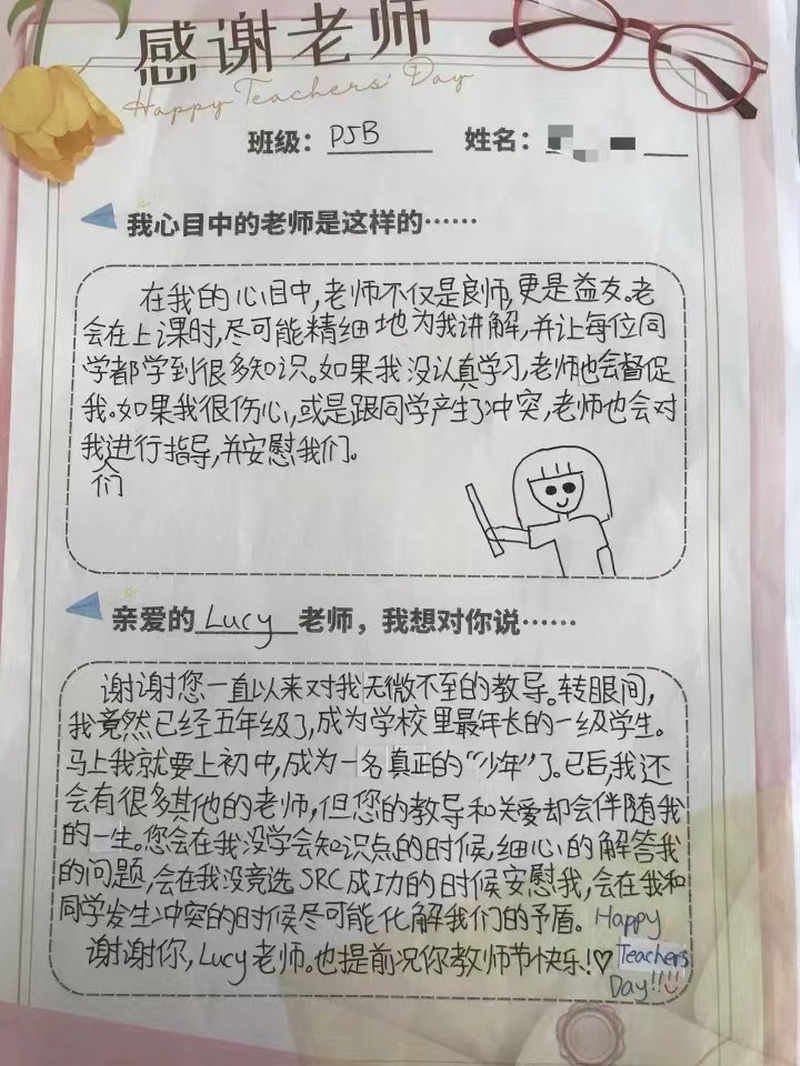 感谢老师
Happy Teachers' Day
班级：P5B 姓名：
我心目中的老师是这样的……
在我的心目中，老师不仅是良师，更是益友。老
会在上课时，尽可能精细地为我讲解，并让每位同
学都学到很多知识。如果我没认真学习，老师也会督促
我。如果我很伤心，或是跟同学产生了冲突，老师也会对
我进行指导，并安慰我们。
们
亲爱的Lucy老师，我想对你说……
谢谢您一直以来对我无微不至的教导。转眼间，
我竟然已经五年级了，成为学校里最年长的一级学生。
马上我就要上初中，成为一名真正的“少年”了。已后，我还
会有很多其他的老师，但您的教导和关爱却会伴随我
的一生。您会在我没学会知识点的时候，细心的解答我
的问题，会在我没竞选SRC成功的时候安慰我，会在我和
同学发生冲突的时候尽可能化解我们的矛盾。
谢谢你，Lucy老师。也提前况你教师节快乐！♡
Happy
Teachers
Day!!